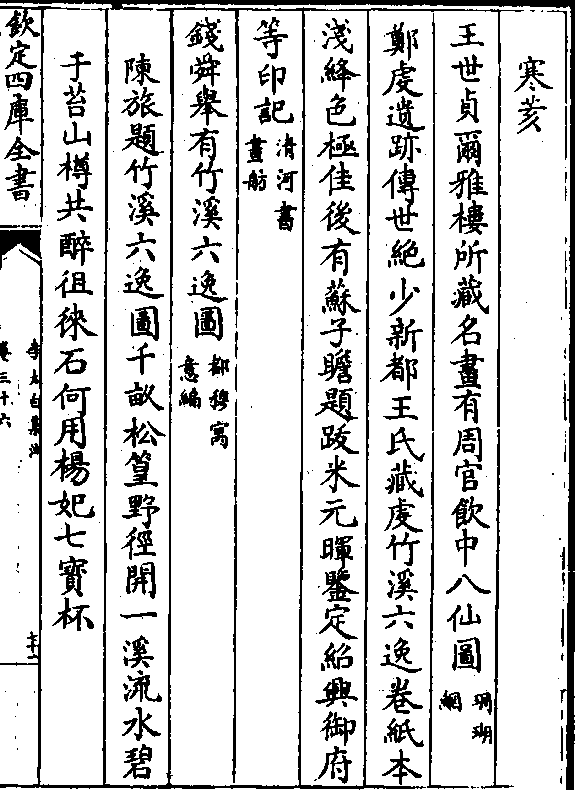 寒荄
王世貞爾雅樓所藏名畫有周官飲中八仙圖珊瑚網
鄭虔遺跡傳世絶少新都王氏藏虔竹溪六逸卷紙本
淺絳色極佳後有蘇子瞻題跋米元暉鑒定紹興御府
等印記清河書畫舫
錢舜舉有竹溪六逸圖都穆寓意編
陳旅題竹溪六逸圖千畝松篁野徑開一溪流水碧
于苔山樽共醉徂徠石何用楊妃七寳杯
欽定四庫全書
李太白集注
卷三十六